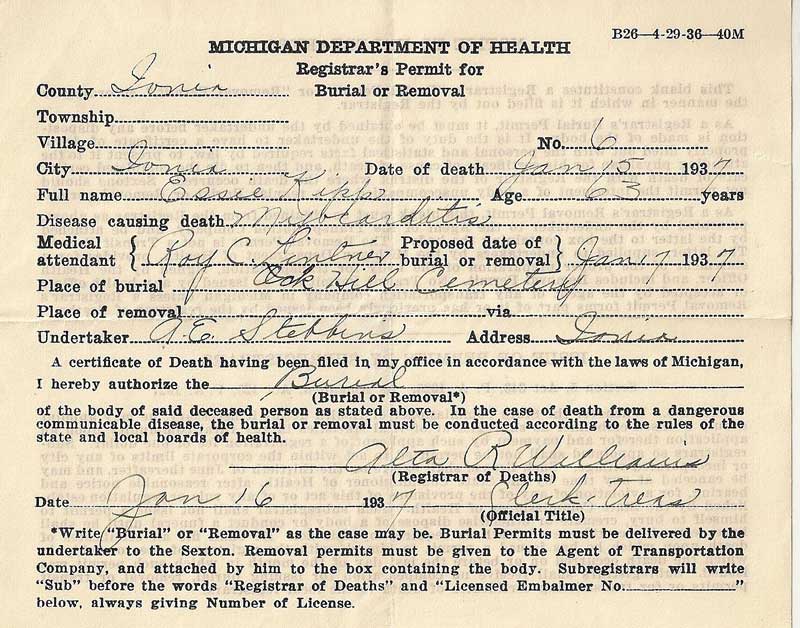 B26—4-29-36—40M
MICHIGAN DEPARTMENT OF HEALTH
Registrar's Permit for
County Ionia Burial or Removal
Township
Village No. 6
City Ionia Date of death Jan 15 1937
Full name Essie Kipp Age 63 years
Disease causing death Myocarditis
Medical attendant { Roy C. Lintner Proposed date of burial or removal } Jan 17 1937
Place of burial Hill Cemetery
Place of removal via
Undertaker A.E. Stebbins Address Ionia
A certificate of Death having been filed in my office in accordance with the laws of Michigan,
I hereby authorize the Burial
(Burial or Removal*)
of the body of said deceased person as stated above. In the case of death from a dangerous
communicable disease, the burial or removal must be conducted according to the rules of the
state and local boards of health.
Alta R Williams
(Registrar of Deaths)
Date Jan 16 1937 Clerk-Treas
(Official Title)
*Write "Burial" or "Removal" as the case may be. Burial Permits must be delivered by the
undertaker to the Sexton. Removal permits must be given to the Agent of Transportation
Company, and attached by him to the box containing the body. Subregistrars will write
"Sub" before the words "Registrar of Deaths" and "Licensed Embalmer No. "
below, always giving Number of License.